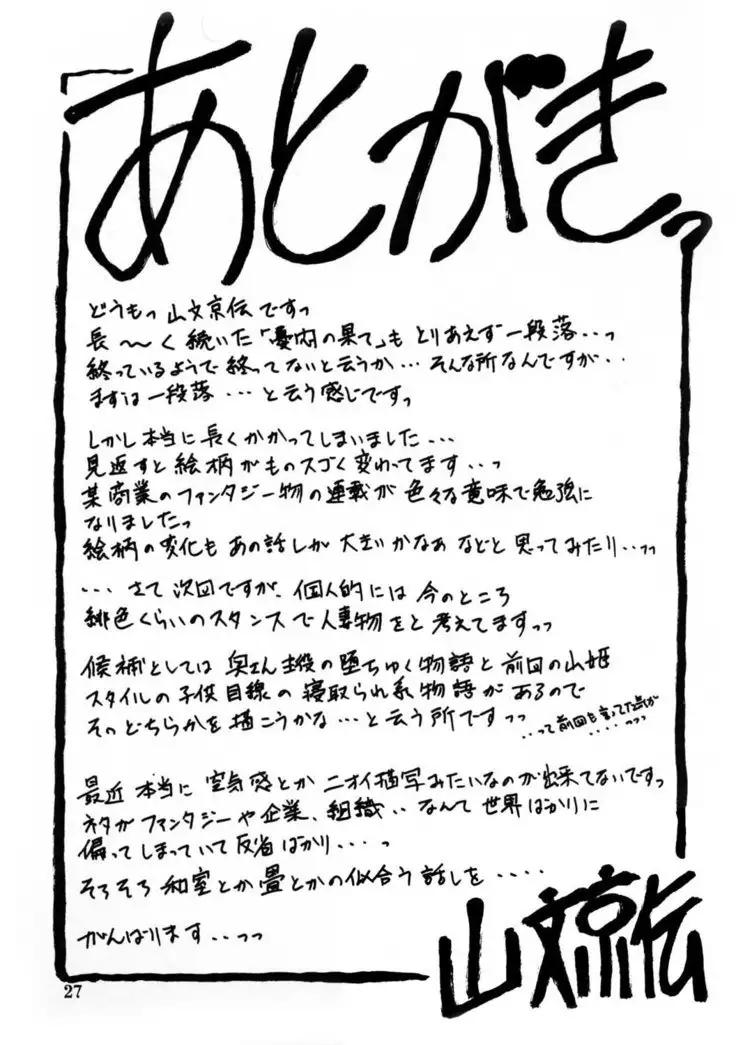 あとがきっ
どうもっ山文京伝ですっ
長〜く続いた「憂内の果て」もとりあえず一段落‥っ
終っているようで終ってないと云うか…そんな所なんですが‥
まずは一段落…と云う感じですっ
しかし本当に長くかかってしまいました…
見返すと絵柄がものスゴく変わってます‥っ
某商業のファンタジー物の連載が色々な意味で勉強に
なりましたっ
絵柄の変化もあの話しが大きいかなぁなどと思ってみたり‥っっ
…さて次回ですが、個人的には今のところ
緋色くらいのスタンスで人妻物をと考えてますっっ
候補としては奥さん主役の堕ちゆく物語と前回の山姫
スタイルの子供目線の寝取られ系物語があるので
そのどちらかを描こうかな…と云う所ですっっ
‥って前回も言ってた気が
‥‥っっっ
最近本当に空気感とかニオイ描写みたいなのが出来てないですっ
ネタがファンタジーや企業、組織‥なんて世界ばかりに
偏ってしまっていて反省ばかり‥‥っ
そろそろ和室とか畳とかの似合う話しを‥‥
がんばります‥っっ
山文京伝
27